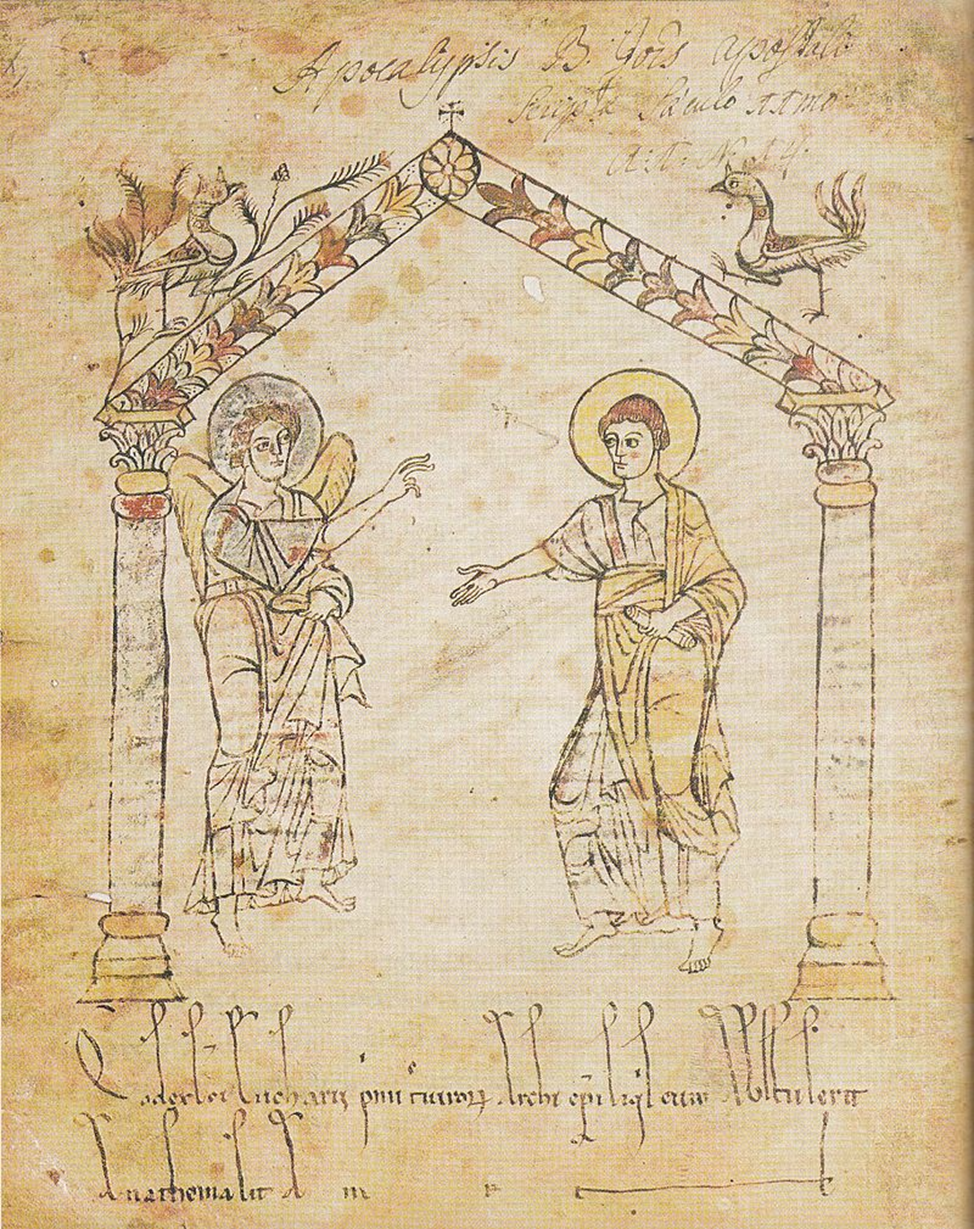 Apocalypsis B. Jōis apostoli
Scripta Saeculo
Codex sci eucharii pmi treuiroꝝ Archi epi siqs eum Abstulerit
Anathema sit A m e n